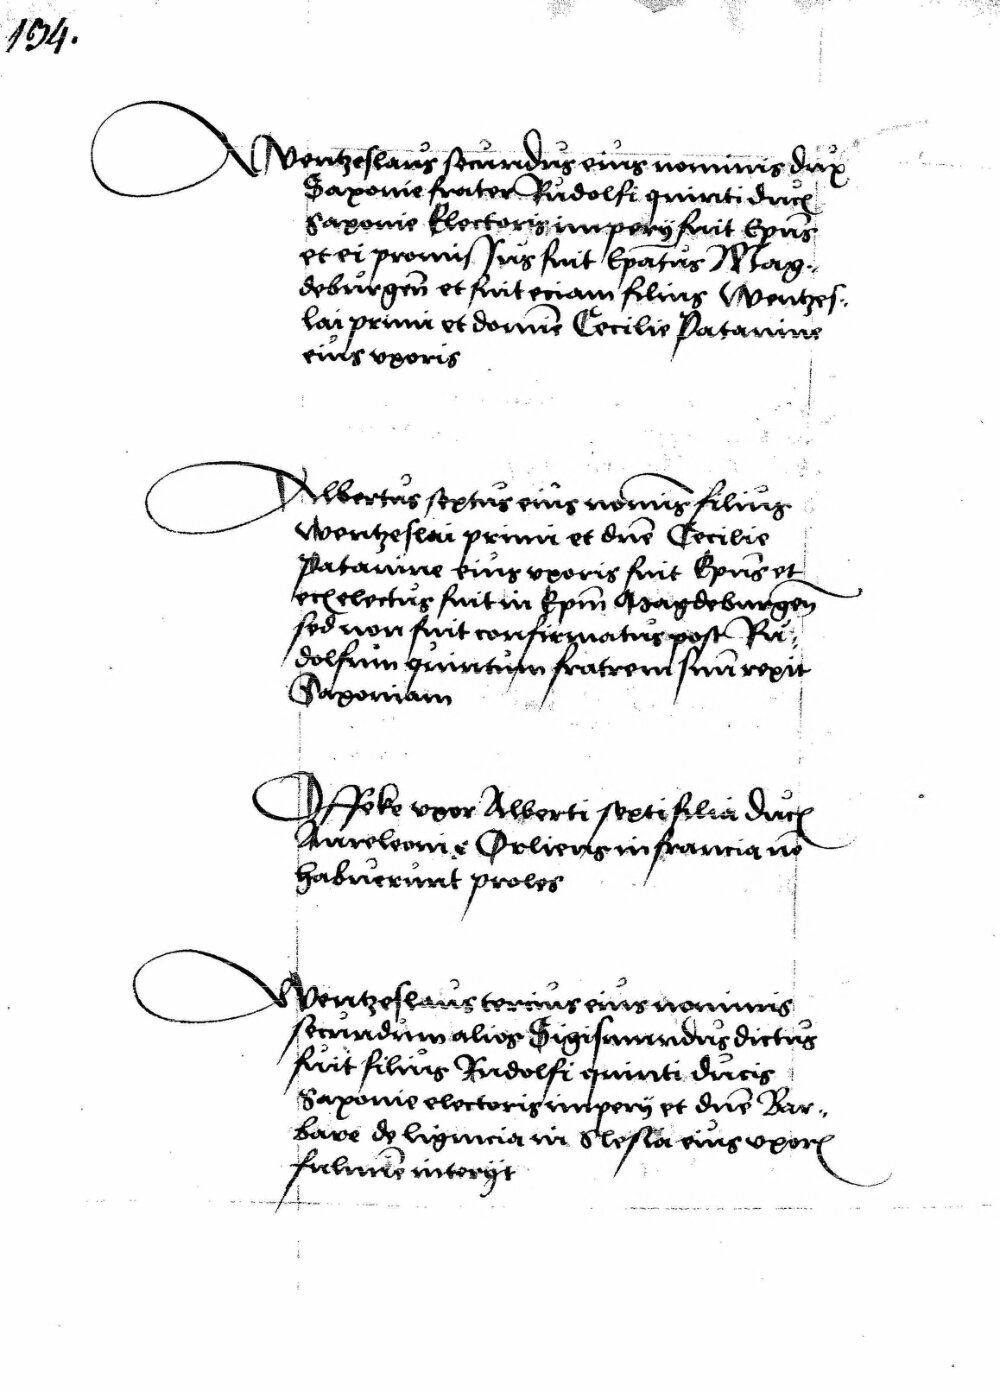 194.
Wentzeslaus secundus eius nominis dux
Saxonie frater Rudolfi quinti duc
Saxonie Electoris imperij fuit Epūs
et ei promissus fuit Epatus Mag-
deburgen̄ et fuit eciam filius Wentzes-
lai primi et domine Cecilie Patavine
eius vxoris
Albertus sextus eius nomis filius
Wentzeslai primi et dn̄e Cecilie
Patavine eius vxoris fuit Epūs et
electus fuit in Epm̄ Magdeburgen̄
sed non fuit confirmatus post Ru-
dolfum quintum fratrem suū rexit
Saxoniam
Offeke vxor Alberti sexti filia duc
Aureleoni Orliens in francia nō
habuerunt proles
Wentzeslaus tercius eius nominis
secundum alios Sigismundus dictus
fuit filius Rudolfi quinti ducis
Saxonie electoris imperij et dn̄e Bar-
bare de lignicia in Slesia eius vxor
fulmīe interijt